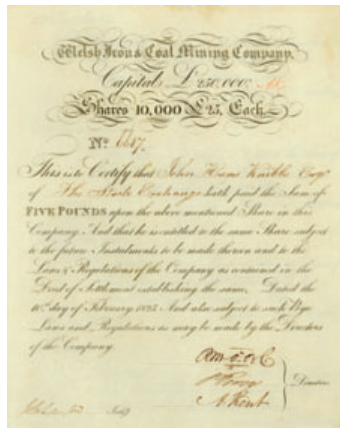 Welsh Iron & Coal Mining Company,
Capital £250,000.
Shares 10,000 £25, Each.
No.
This is to Certify that John Knibbs Esqr.
of The Stock Exchange hath paid the Sum of
FIVE POUNDS upon the above mentioned Share in this
Company. And that he is entitled to the same Share subject
to the future Instalments to be made thereon and to the
Laws & Regulations of the Company as contained in the
Deed of Settlement establishing the same, Dated the
10th day of February 1825. And also subject to such Bye
Laws and Regulations as may be made by the Directors
of the Company.
Directors
A. Kent